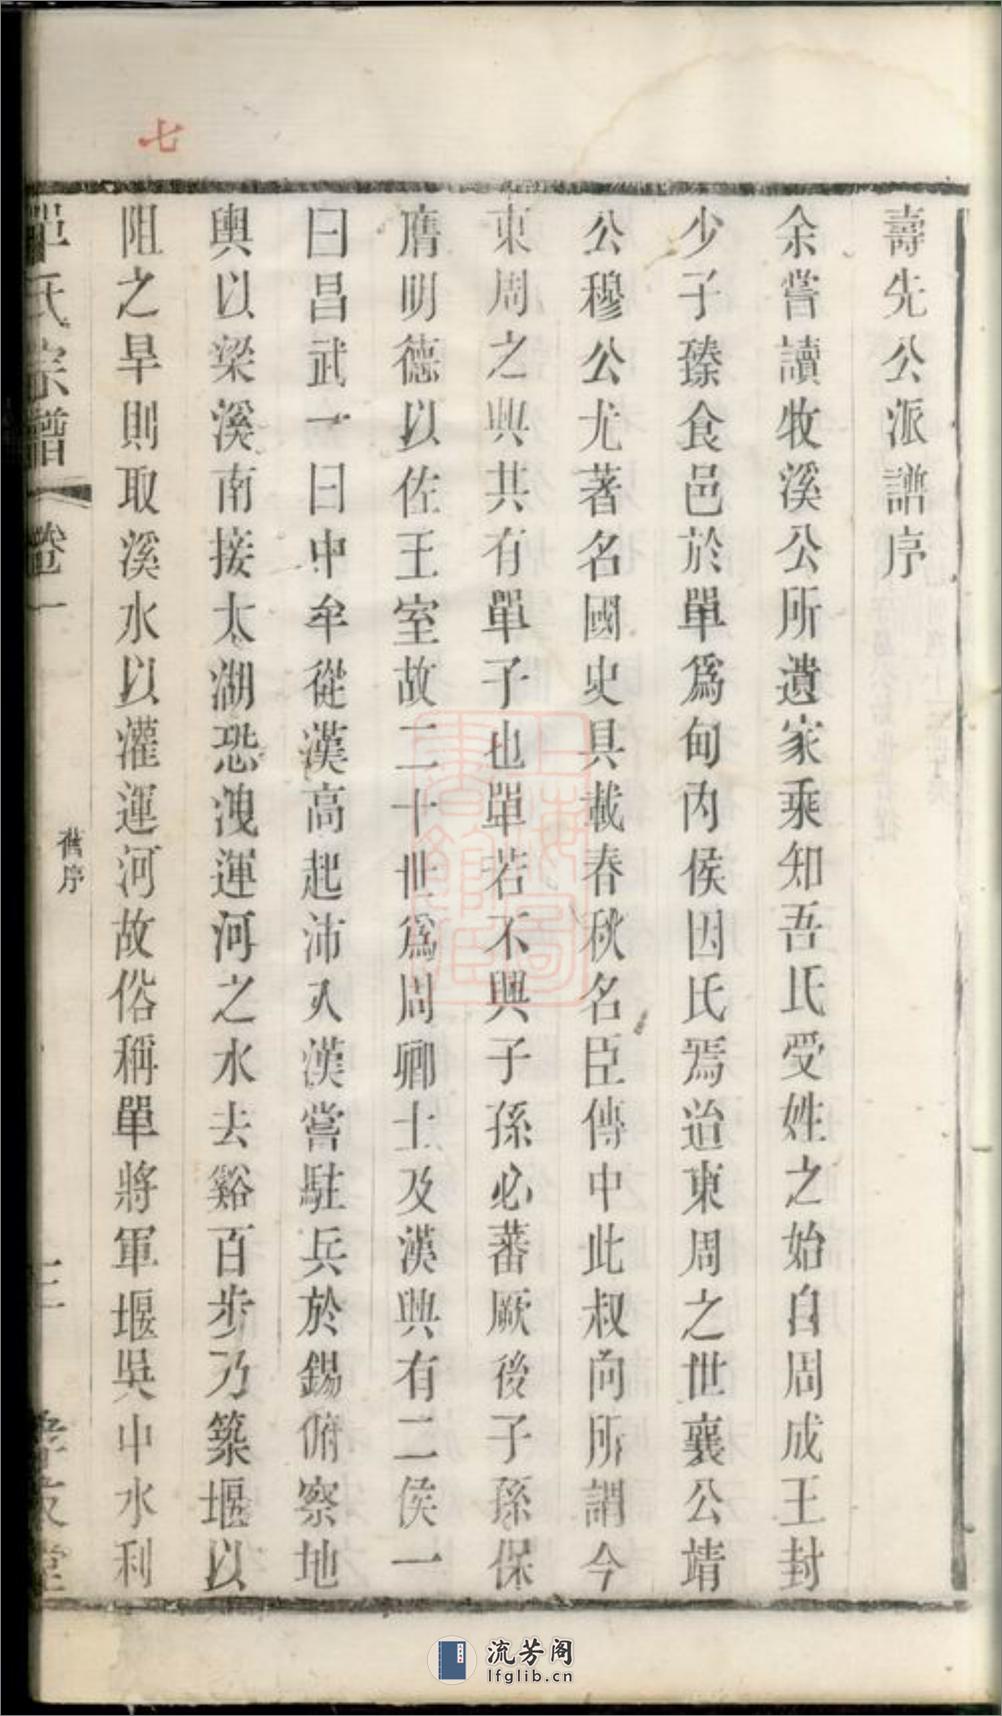 壽先公派譜序
余嘗讀牧溪公所遺家乘知吾氏受姓之始自周成王封
少子臻食邑於單爲甸內侯因氏焉迨東周之世襄公靖
公穆公尤著名國史具載春秋名臣傳中此叔向所謂今
東周之興其有單子也單若不興子孫必蕃厥後子孫保
膺明德以佐王室故二十世爲周卿士及漢興有二侯一
曰昌武一曰中牟從漢高起沛入漢嘗駐兵於錫俯察地
輿以梁溪南接太湖恐洩運河之水去谿百步乃築堰以
阻之旱則取溪水以灌運河故俗稱單將軍堰吳中水利
單氏宗譜
卷一
舊序
孝友堂
七
上海圖書館藏
流芳阁
lfglib.cn